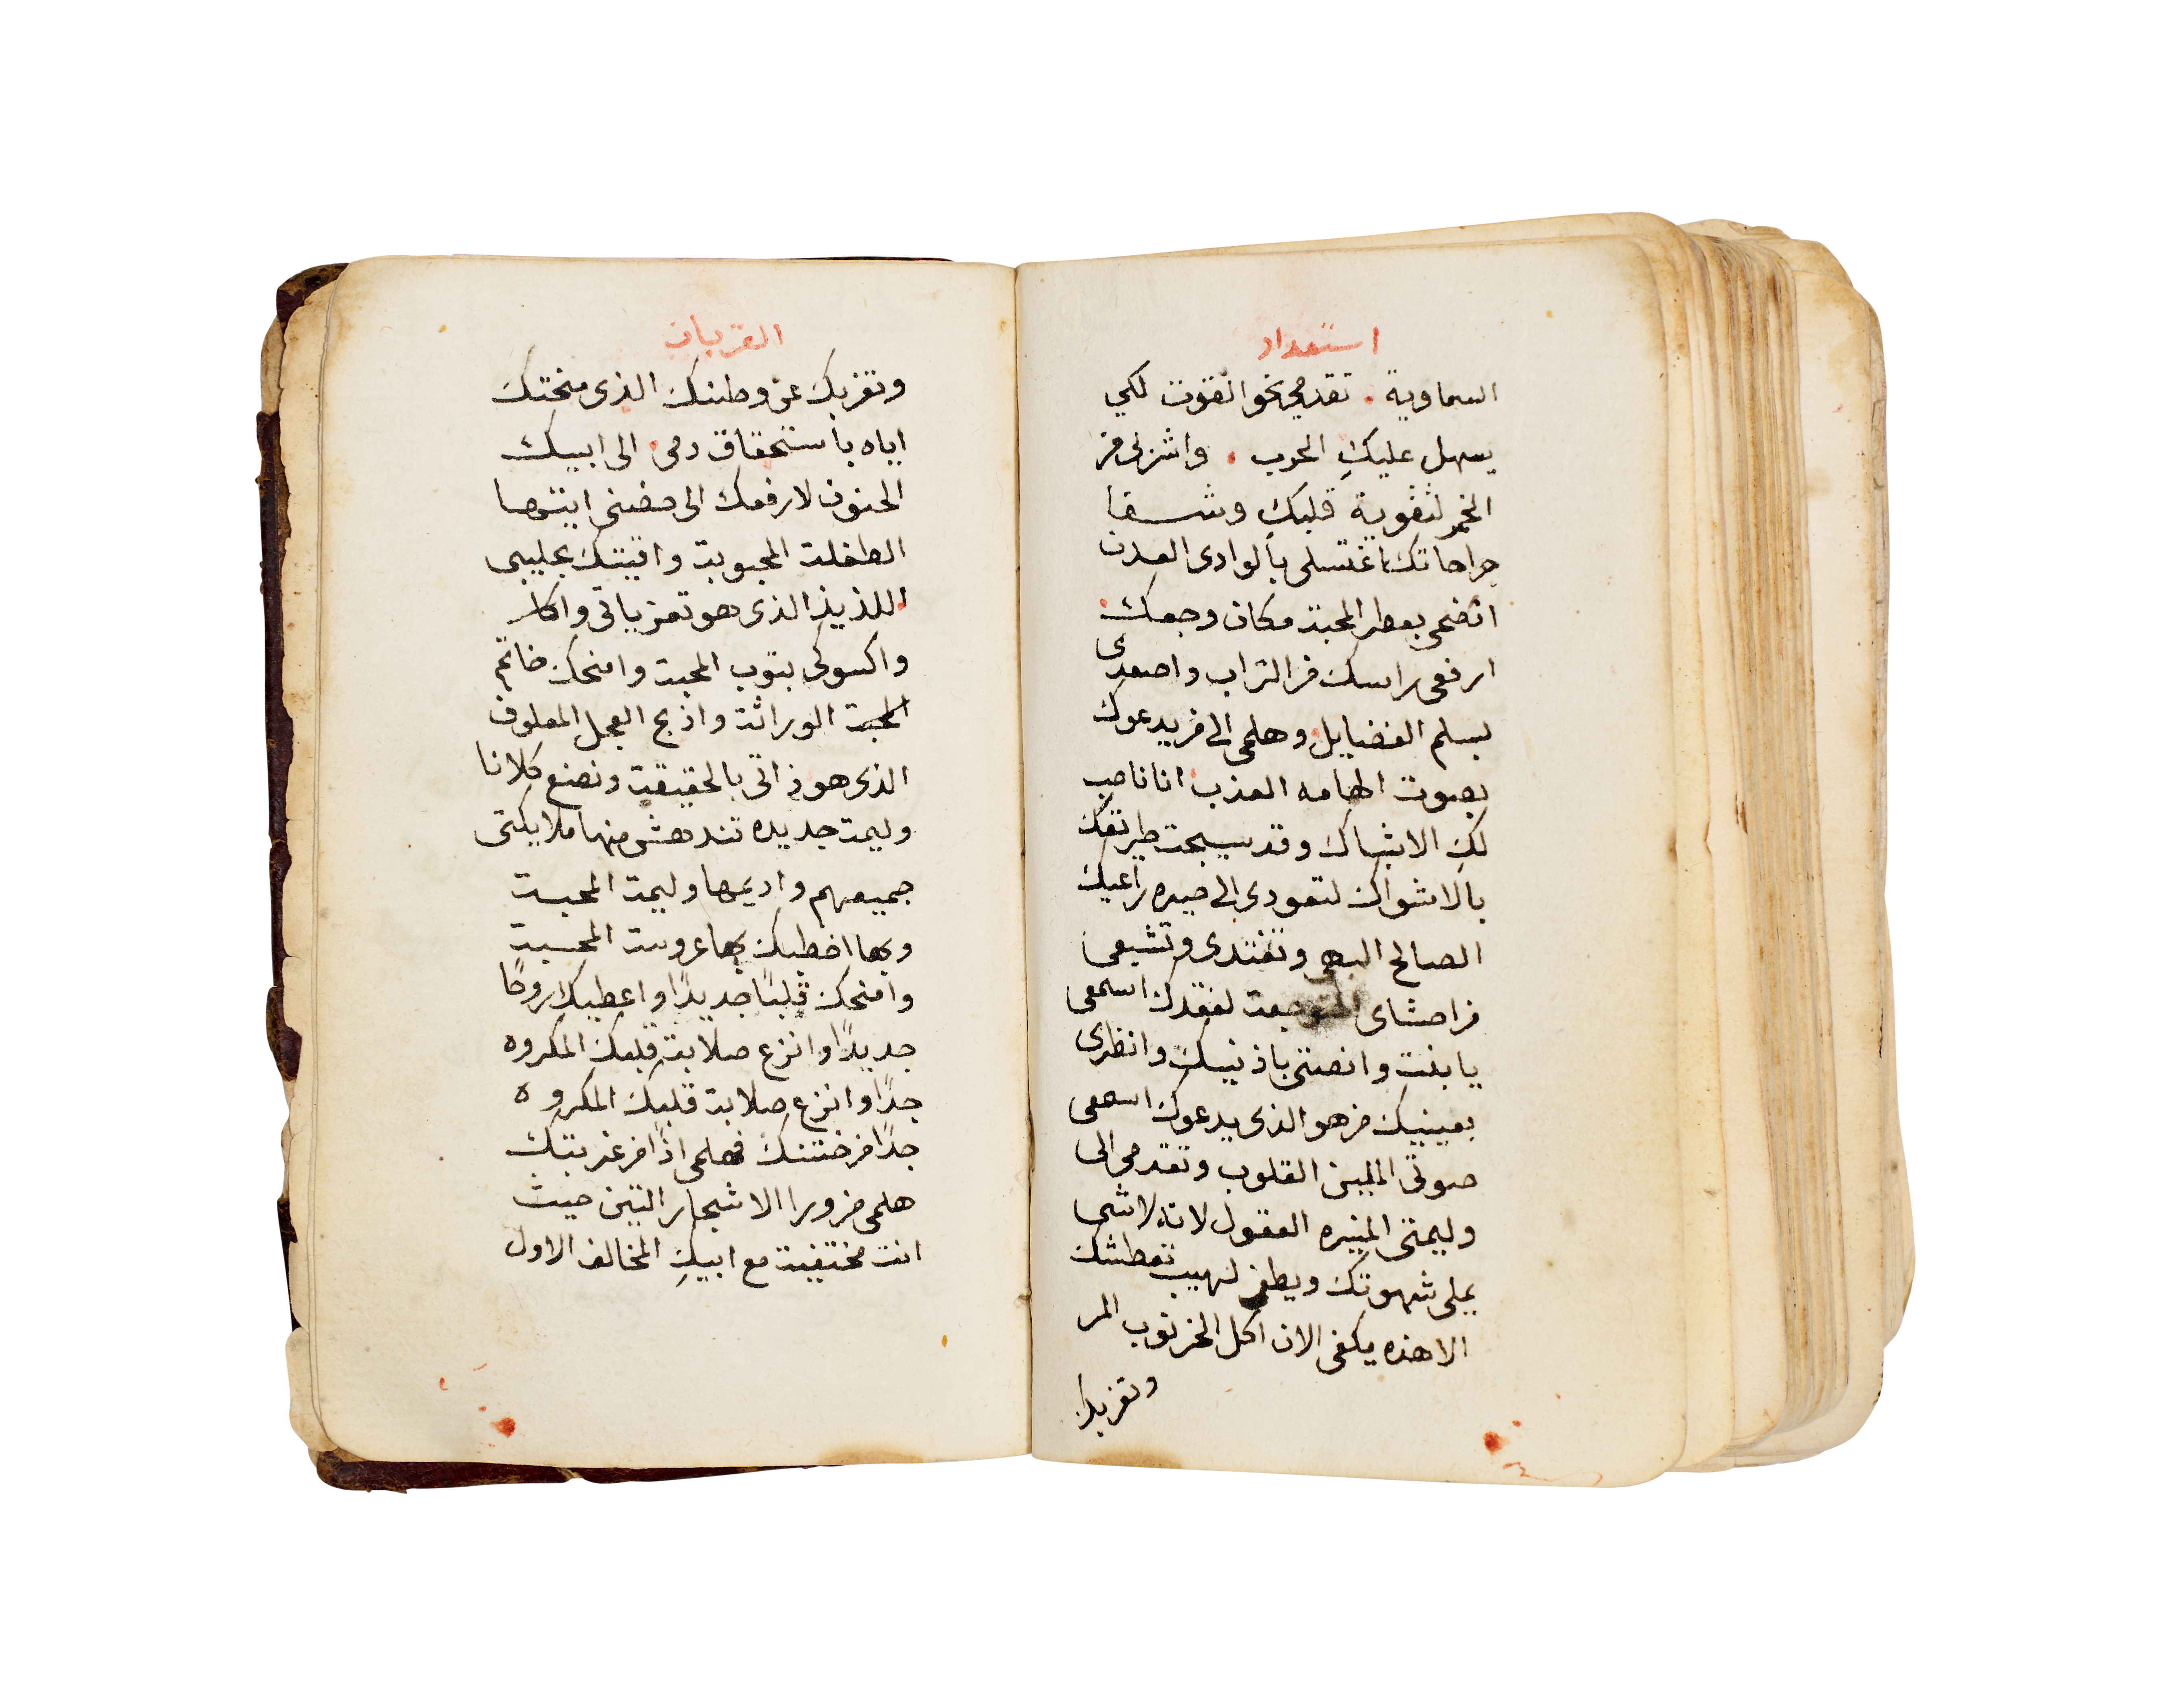 استعداد
السماوية. تقدمي نحو القوت لكي
يسهل عليكِ الحرب. واشربي من
الخمر لتقوية قلبكِ وشفا
جراحاتك اغتسلي بالوادي العدن
انضحي بعطر المحبة مكان وجعك
ارفعي راسك من التراب واصعدي
بسلم الفضايل وهلمي الى من يدعوك
بصوت الهامه العذب انا ناصب
لكِ الاشباك وقد سيجت طريقك
بالاشواك لتعودي الى صيره راعيك
الصالح البهي وتغتدي وتشبعي
من احشاي المتوجعة لفقدك اسمعي
يا بنت وانصتي باذنيك وانظري
بعينيك من هو الذي يدعوك اسمعي
صوتي الملين القلوب وتقدمي الى
وليمتي المنيره العقول لانه لا شي
يملى شهوتك ويطفي لهيب تعطشك
الا هذه يكفي الان اكل الخرنوب المر
وتغربك
القربان
وتغربك عن وطنك الذي منحتك
اياه بأستحقاق دمي الى ابيك
الحنون لارفعك الى حضني ايتها
الطفلة المحبوبة واقيتك بحليبي
اللذيذ الذي هو تعزياتي
واكسوكي بتوب المحبة وامنحك خاتم
الوراثة واذبح العجل المعلوف
الذي هو ذاتي بالحقيقة ونصنع كلانا
وليمة جديده تندهش منها ملايكتي
جميعهم واديمها وليمة المحبة
وبها اخطبك بها عروسة المحبة
وامنحك قلبًا جديدًا واعطيكِ روحًا
جديدًا وانزع صلابة قلبك المكروه
جدًا وانزع صلابة قلبك المكروه
جدًا من ختنك فهلمي اذًا من غربتك
هلمي من ورا الاشجار التين حيث
انت مختفية مع ابيكِ المخالف الاول